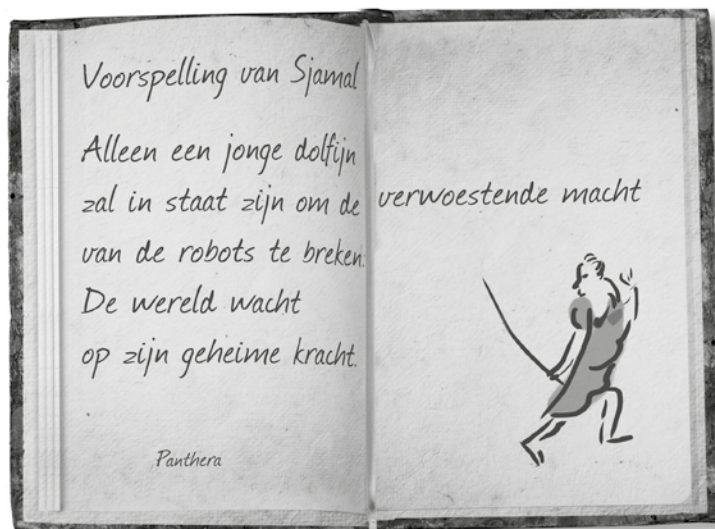 Voorspelling van Sjamal
Alleen een jonge dolfijn
zal in staat zijn om de verwoestende macht
van de robots te breken.
De wereld wacht
op zijn geheime kracht.
Panthera